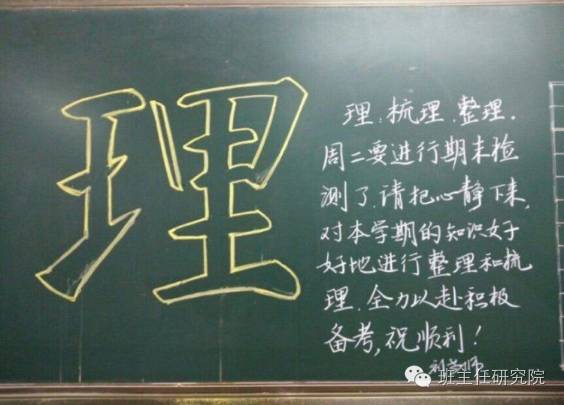 理
理:梳理.整理.
周二要进行期末检
测了.请把心静下来,
对本学期的知识好
好地进行整理和梳
理.全力以赴积极
备考,祝顺利!
班主任研究院